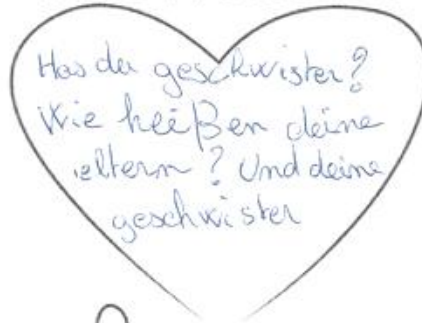 Has du geschwister?
Wie heißen deine
eltern? Und deine
geschwister